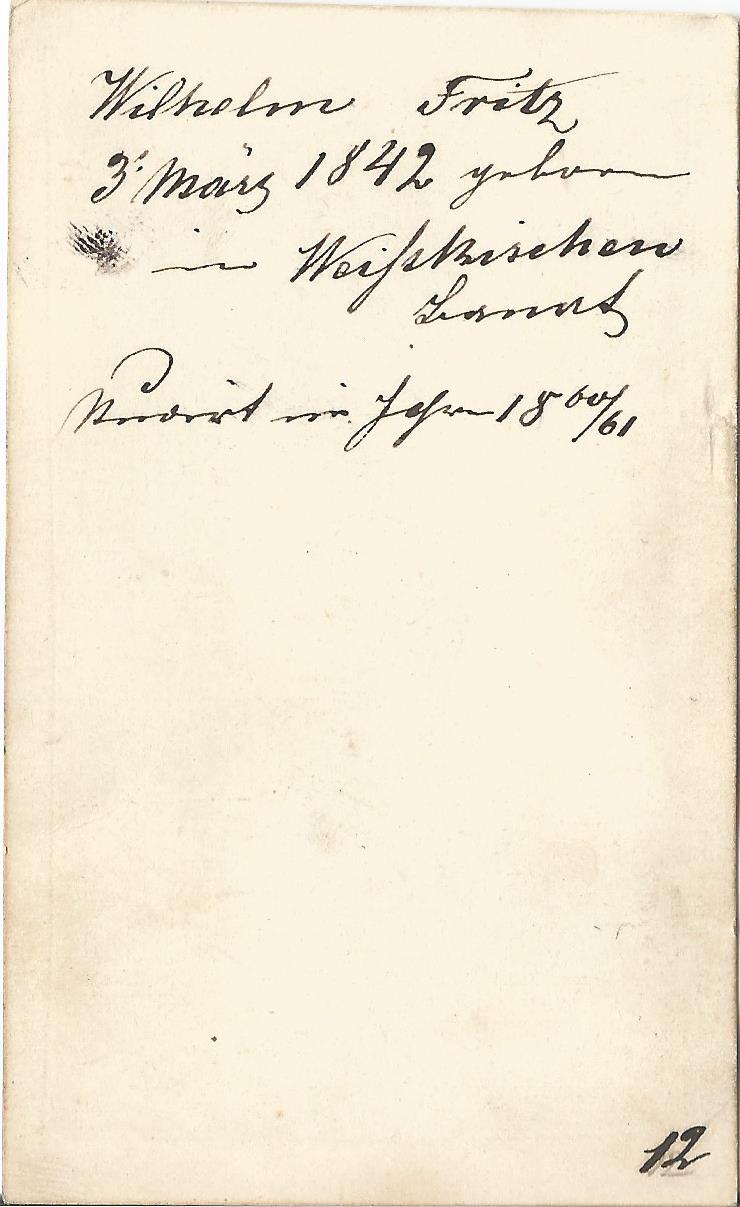 Wilhelm Fritz
3t März 1842 geboren
in Weißkirchen
Banat
im Jahre 1860/61
12